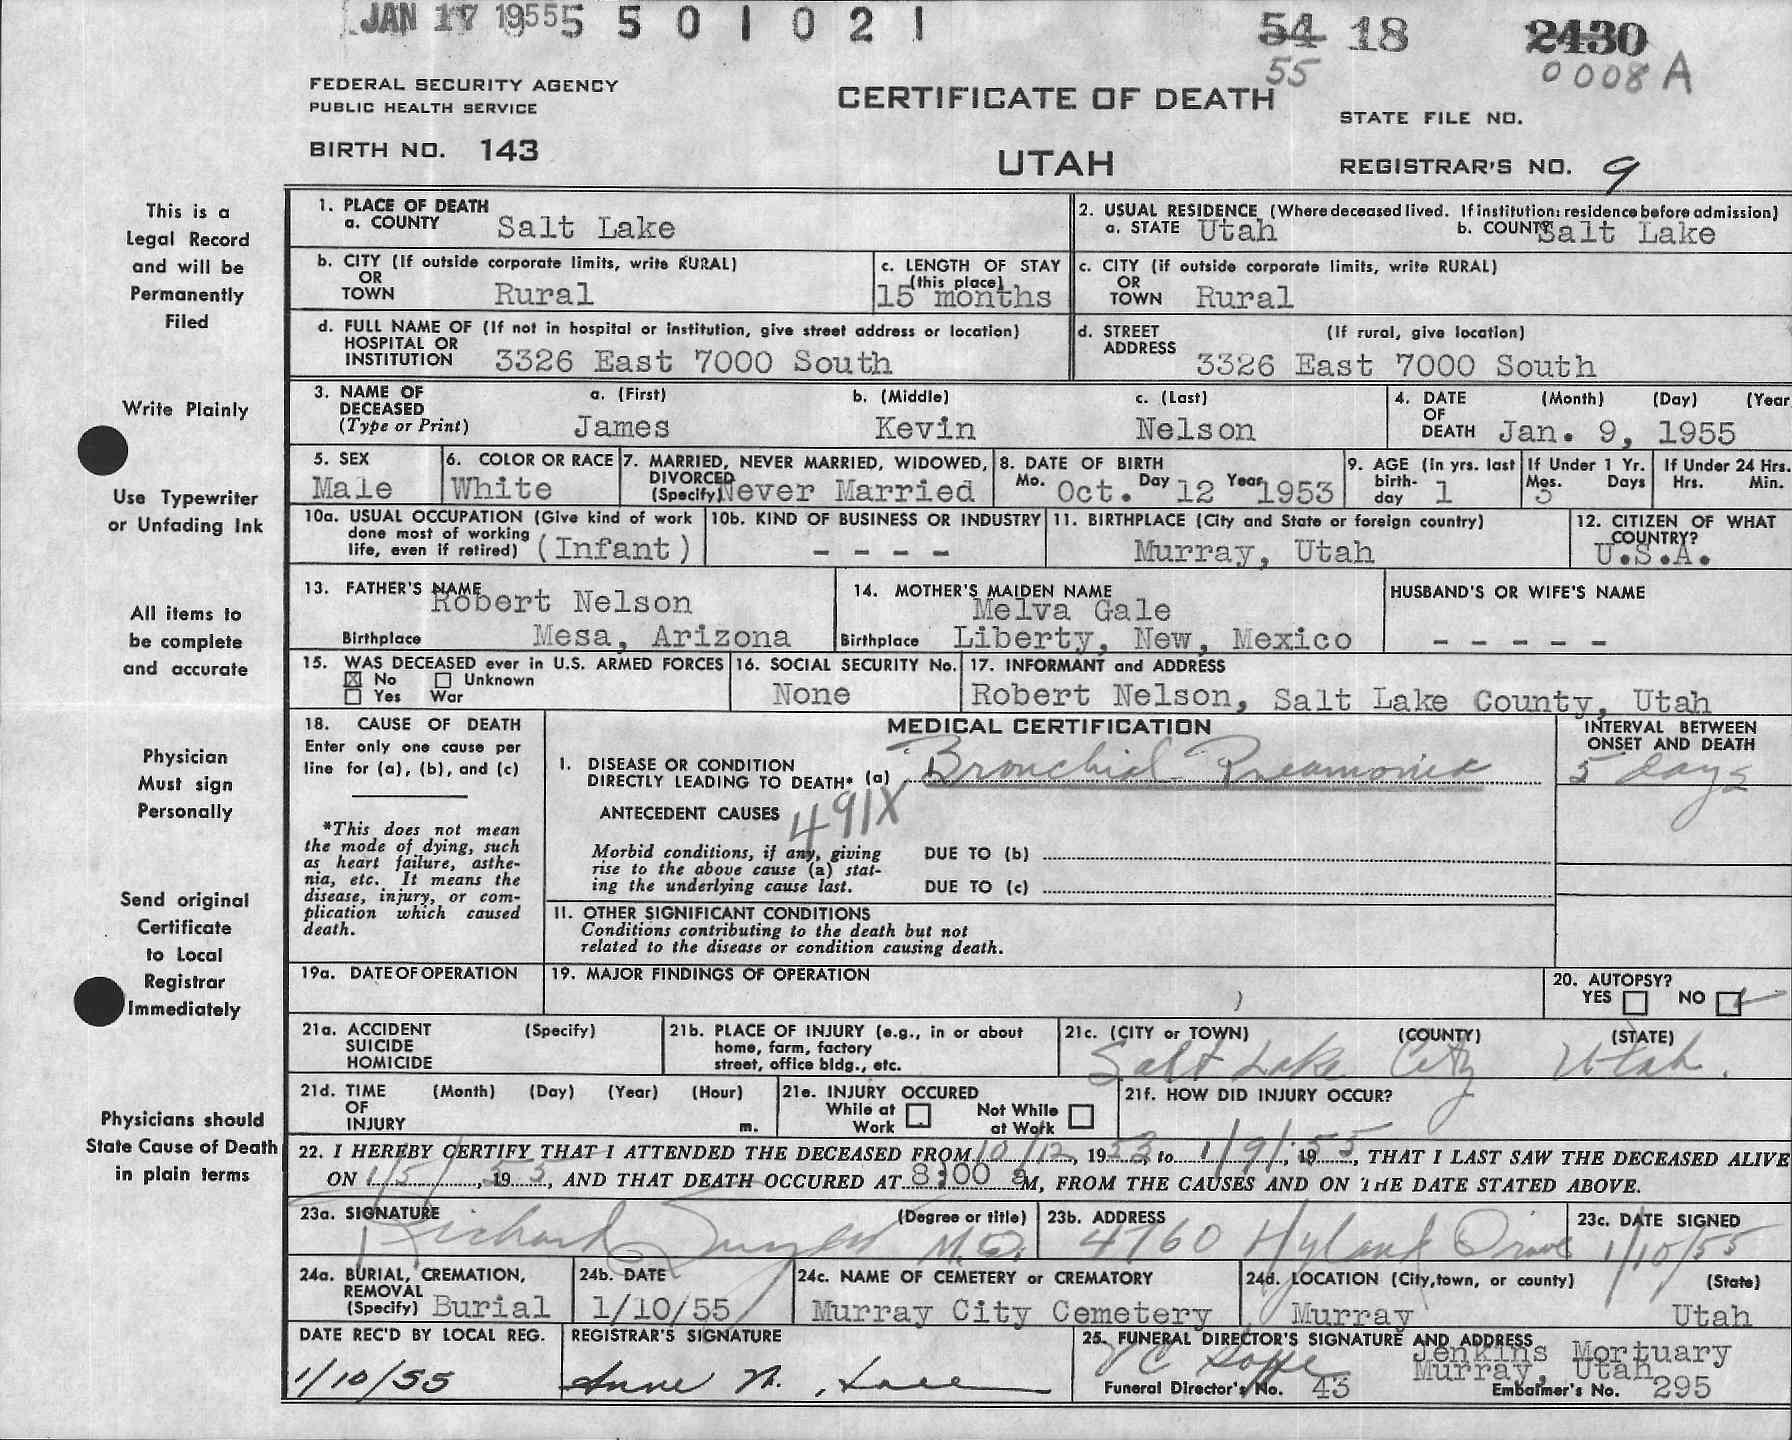 JAN 17 1955 5 5 0 1 0 2 1
54 18 2430
55 0008 A
FEDERAL SECURITY AGENCY
PUBLIC HEALTH SERVICE
CERTIFICATE OF DEATH
STATE FILE NO.
BIRTH NO. 143
UTAH
REGISTRAR'S NO. 9
This is a
Legal Record
and will be
Permanently
Filed
Write Plainly
Use Typewriter
or Unfading Ink
All items to
be complete
and accurate
Physician
Must sign
Personally
Send original
Certificate
to Local
Registrar
Immediately
Physicians should
State Cause of Death
in plain terms
1. PLACE OF DEATH
a. COUNTY Salt Lake
2. USUAL RESIDENCE (Where deceased lived. If institution: residence before admission)
a. STATE Utah b. COUNTY Salt Lake
b. CITY (If outside corporate limits, write RURAL)
OR
TOWN Rural
c. LENGTH OF STAY
(this place)
15 months
c. CITY (if outside corporate limits, write RURAL)
OR
TOWN Rural
d. FULL NAME OF (If not in hospital or institution, give street address or location)
HOSPITAL OR
INSTITUTION 3326 East 7000 South
d. STREET (If rural, give location)
ADDRESS 3326 East 7000 South
3. NAME OF a. (First) b. (Middle) c. (Last)
DECEASED
(Type or Print) James Kevin Nelson
4. DATE (Month) (Day) (Year
OF
DEATH Jan. 9, 1955
5. SEX
Male
6. COLOR OR RACE
White
7. MARRIED, NEVER MARRIED, WIDOWED,
DIVORCED
(Specify) Never Married
8. DATE OF BIRTH
Mo. Oct. Day 12 Year 1953
9. AGE (in yrs. last
birth-
day 1
If Under 1 Yr.
Mos. Days
3
If Under 24 Hrs.
Hrs. Min.
10a. USUAL OCCUPATION (Give kind of work
done most of working
life, even if retired) (Infant)
10b. KIND OF BUSINESS OR INDUSTRY
- - - -
11. BIRTHPLACE (City and State or foreign country)
Murray, Utah
12. CITIZEN OF WHAT
COUNTRY?
U.S.A.
13. FATHER'S NAME
Robert Nelson
Birthplace Mesa, Arizona
14. MOTHER'S MAIDEN NAME
Melva Gale
Birthplace Liberty, New, Mexico
HUSBAND'S OR WIFE'S NAME
- - - - -
15. WAS DECEASED ever in U.S. ARMED FORCES
☒ No ☐ Unknown
☐ Yes War
16. SOCIAL SECURITY No.
None
17. INFORMANT and ADDRESS
Robert Nelson, Salt Lake County, Utah
18. CAUSE OF DEATH
Enter only one cause per
line for (a), (b), and (c)
*This does not mean
the mode of dying, such
as heart failure, asthe-
nia, etc. It means the
disease, injury, or com-
plication which caused
death.
MEDICAL CERTIFICATION
INTERVAL BETWEEN
ONSET AND DEATH
I. DISEASE OR CONDITION
DIRECTLY LEADING TO DEATH* (a) Bronchial Pneamonia 5 days
ANTECEDENT CAUSES 491X
Morbid conditions, if any, giving
rise to the above cause (a) stat-
ing the underlying cause last.
DUE TO (b)
DUE TO (c)
II. OTHER SIGNIFICANT CONDITIONS
Conditions contributing to the death but not
related to the disease or condition causing death.
19a. DATE OF OPERATION
19. MAJOR FINDINGS OF OPERATION
20. AUTOPSY?
YES ☐ NO ☑
21a. ACCIDENT (Specify)
SUICIDE
HOMICIDE
21b. PLACE OF INJURY (e.g., in or about
home, farm, factory
street, office bldg., etc.
21c. (CITY or TOWN) (COUNTY) (STATE)
Salt Lake City Utah.
21d. TIME (Month) (Day) (Year) (Hour)
OF
INJURY m.
21e. INJURY OCCURED
While at Work ☐ Not While at Work ☐
21f. HOW DID INJURY OCCUR?
22. I HEREBY CERTIFY THAT I ATTENDED THE DECEASED FROM 10/12, 1953, to 1/9/, 1955, THAT I LAST SAW THE DECEASED ALIVE
ON 1/5/, 1955, AND THAT DEATH OCCURED AT 8:00 a M, FROM THE CAUSES AND ON THE DATE STATED ABOVE.
23a. SIGNATURE (Degree or title)
Richard M.D.
23b. ADDRESS
4760 Hyland Drive
23c. DATE SIGNED
1/10/55
24a. BURIAL, CREMATION,
REMOVAL
(Specify) Burial
24b. DATE
1/10/55
24c. NAME OF CEMETERY or CREMATORY
Murray City Cemetery
24d. LOCATION (City, town, or county) (State)
Murray Utah
DATE REC'D BY LOCAL REG.
1/10/55
REGISTRAR'S SIGNATURE
Anne N.
25. FUNERAL DIRECTOR'S SIGNATURE AND ADDRESS
Jenkins Mortuary
Murray, Utah
Funeral Director's No. 43 Embalmer's No. 295